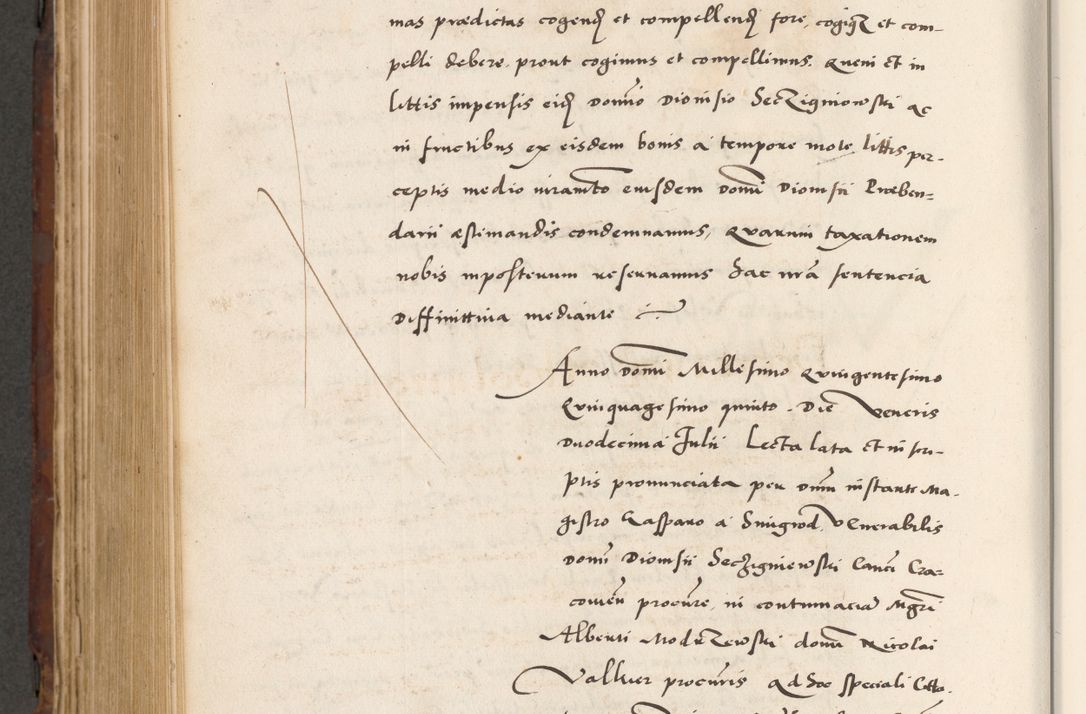 mas prædictas cogend et compellend fore, cogiqz et com-
pelli debere, prout cogimus et compellimus. Quem et in
littis impensis eid Domino Dionisio Seczigniowski ac
in fructibus ex eisdem bonis a tempore mote littis per-
ceptis medio iuramto eiusdem domi Dionisii Præben-
darii æstimandis condemnamus, Quarum taxationem
nobis imposterum reservamus hac nra sentencia
Diffinittiva mediante
Anno Domi Millesimo Quingentesimo
Quinquagesimo quinto. Die Veneris
Duodecima Julii Lecta lata et in scri-
ptis pronunciata per dnm instante Ma-
gistro Gasparo a Smigrod, Venerabilis
Domi Dionisii Seczigniewski Canci Cra-
covien procure, in contumacia Mgri
Alberti Modrzewski domi Nicolai
Valhier procuris Ad hoc speciali Citto.